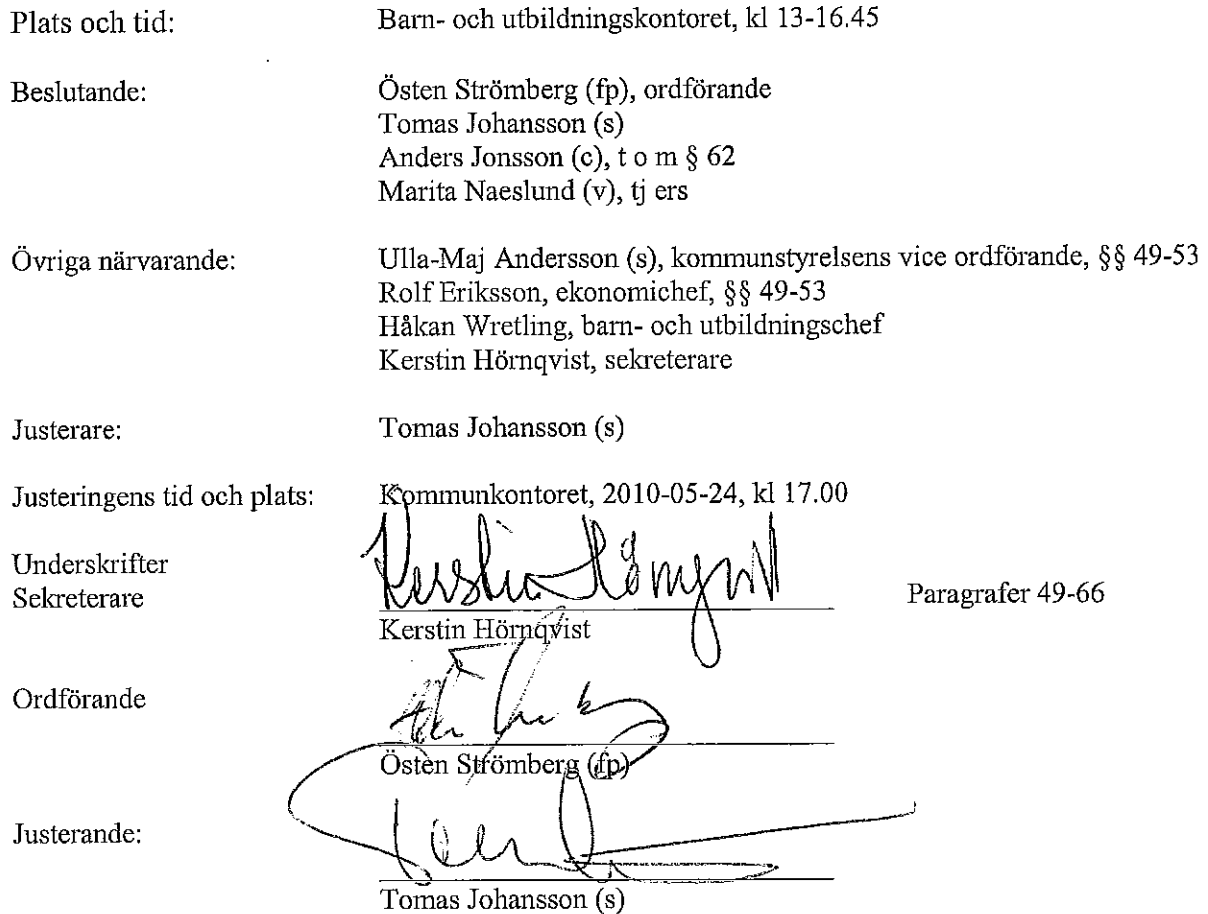 Plats och tid: Barn- och utbildningskontoret, kl 13-16.45
Beslutande: Östen Strömberg (fp), ordförande
Tomas Johansson (s)
Anders Jonsson (c), t o m § 62
Marita Naeslund (v), tj ers
Övriga närvarande: Ulla-Maj Andersson (s), kommunstyrelsens vice ordförande, §§ 49-53
Rolf Eriksson, ekonomichef, §§ 49-53
Håkan Wretling, barn- och utbildningschef
Kerstin Hörnqvist, sekreterare
Justerare: Tomas Johansson (s)
Justeringens tid och plats: Kommunkontoret, 2010-05-24, kl 17.00
Underskrifter
Sekreterare Kerstin Hörnqvist Paragrafer 49-66
Kerstin Hörnqvist
Ordförande
Östen Strömberg (fp)
Justerande:
Tomas Johansson (s)